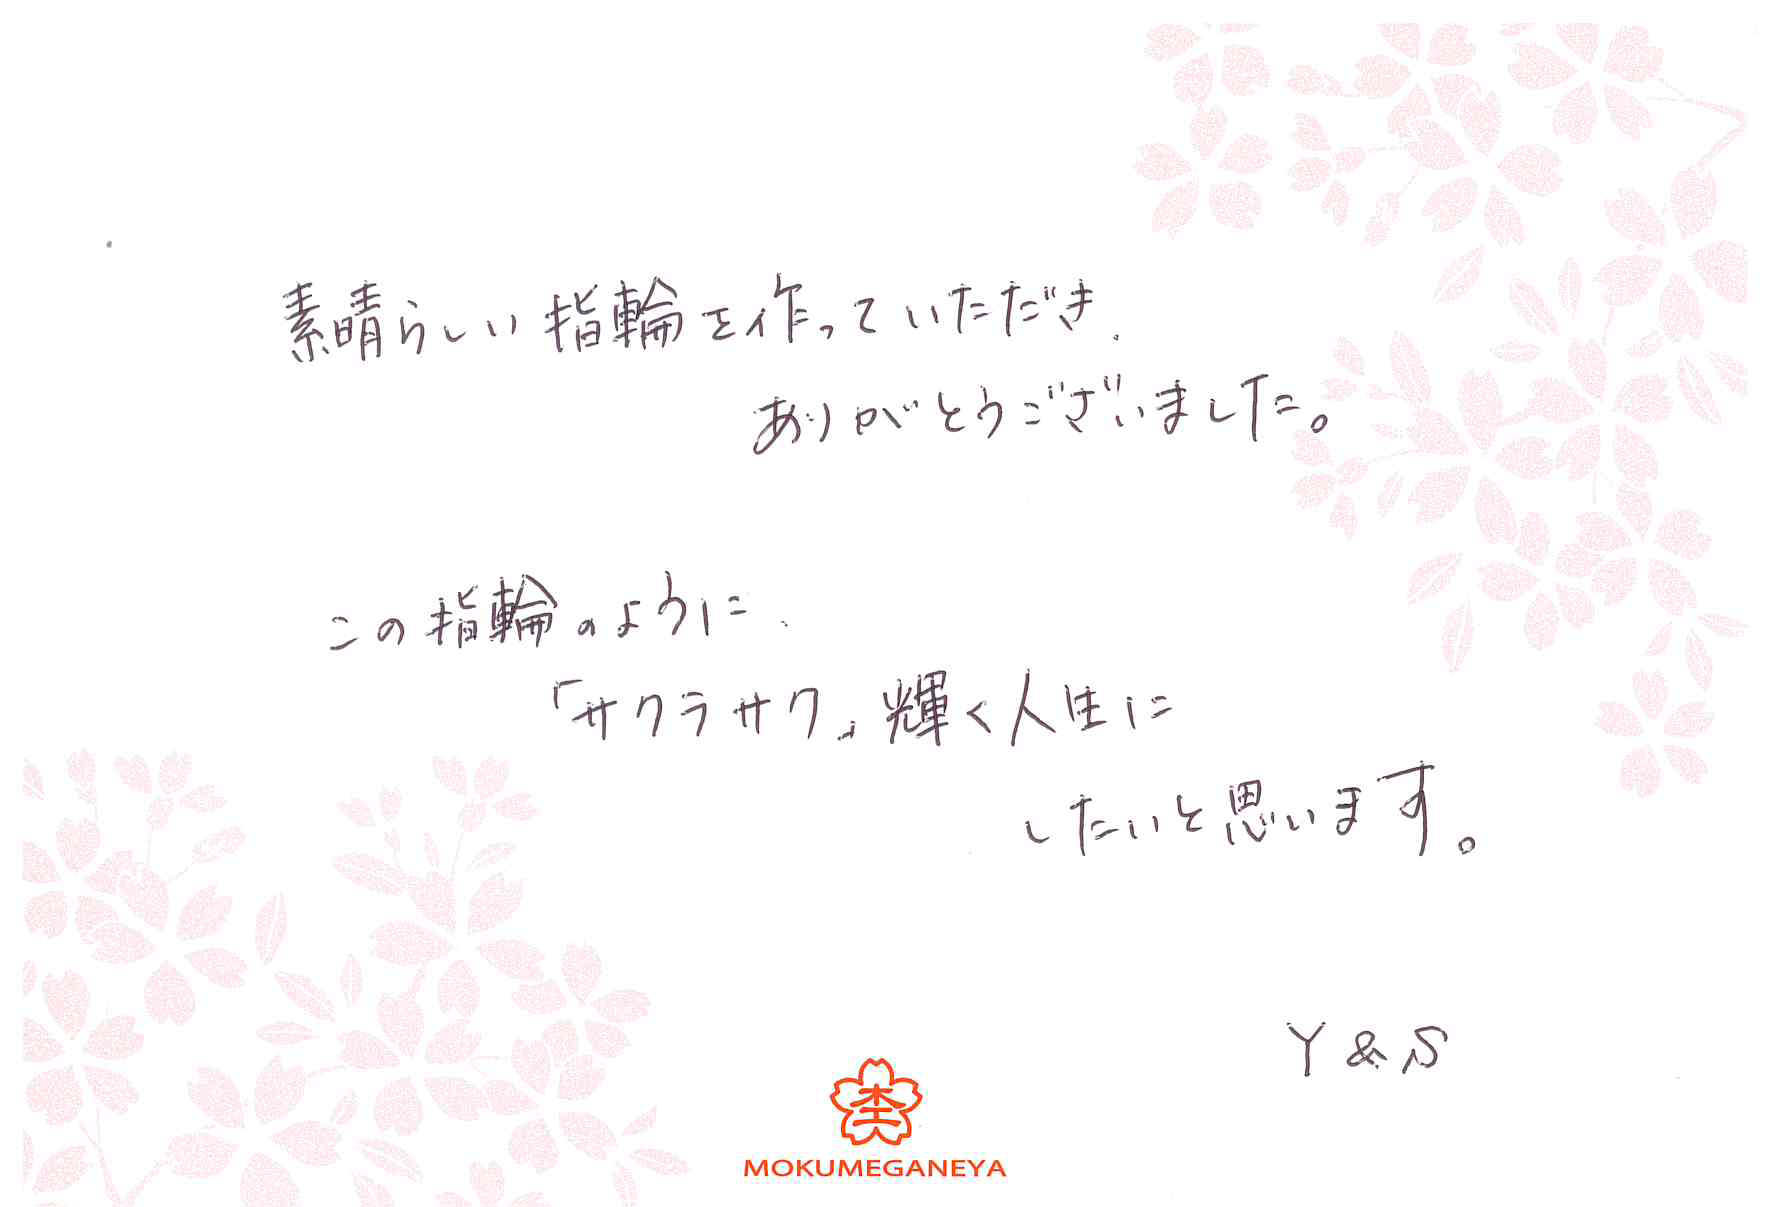 素晴らしい指輪を作っていただき、
ありがとうございました。
この指輪のように、
「サクラサク」輝く人生に
したいと思います。
Y & S
MOKUMEGANEYA